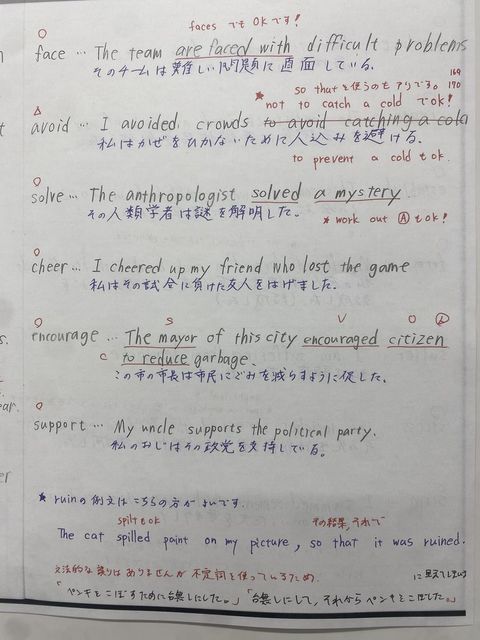 faces でも OKです!
○
face … The team are faced with difficult problems
そのチームは難しい問題に直面している。
169
so that を使うのもアリです。170
* not to catch a cold でOK!
△
avoid … I avoided crowds to avoid catching a cold
私はかぜをひかないために人込みを避ける。
to prevent a cold もok.
○
solve … The anthropologist solved a mystery.
その人類学者は謎を解明した。
* work out Ⓐ もok!
○
cheer … I cheered up my friend who lost the game
私はその試合に負けた友人をはげました。
○ S V O Ⓢ
encourage … The mayor of this city encouraged citizen
C to reduce garbage.
この市の市長は市民にごみを減らすように促した。
○
support … My uncle supports the political party.
私のおじはその政党を支持している。
★ ruinの例文はこちらの方がよいです。
spiltもok その結果,それで
The cat spilled paint on my picture, so that it was ruined.
文法的な誤りはありませんが 不定詞を使っているため、
「ペンキをこぼすために台無しにした。」「台無しにして,それからペンキをこぼした。」